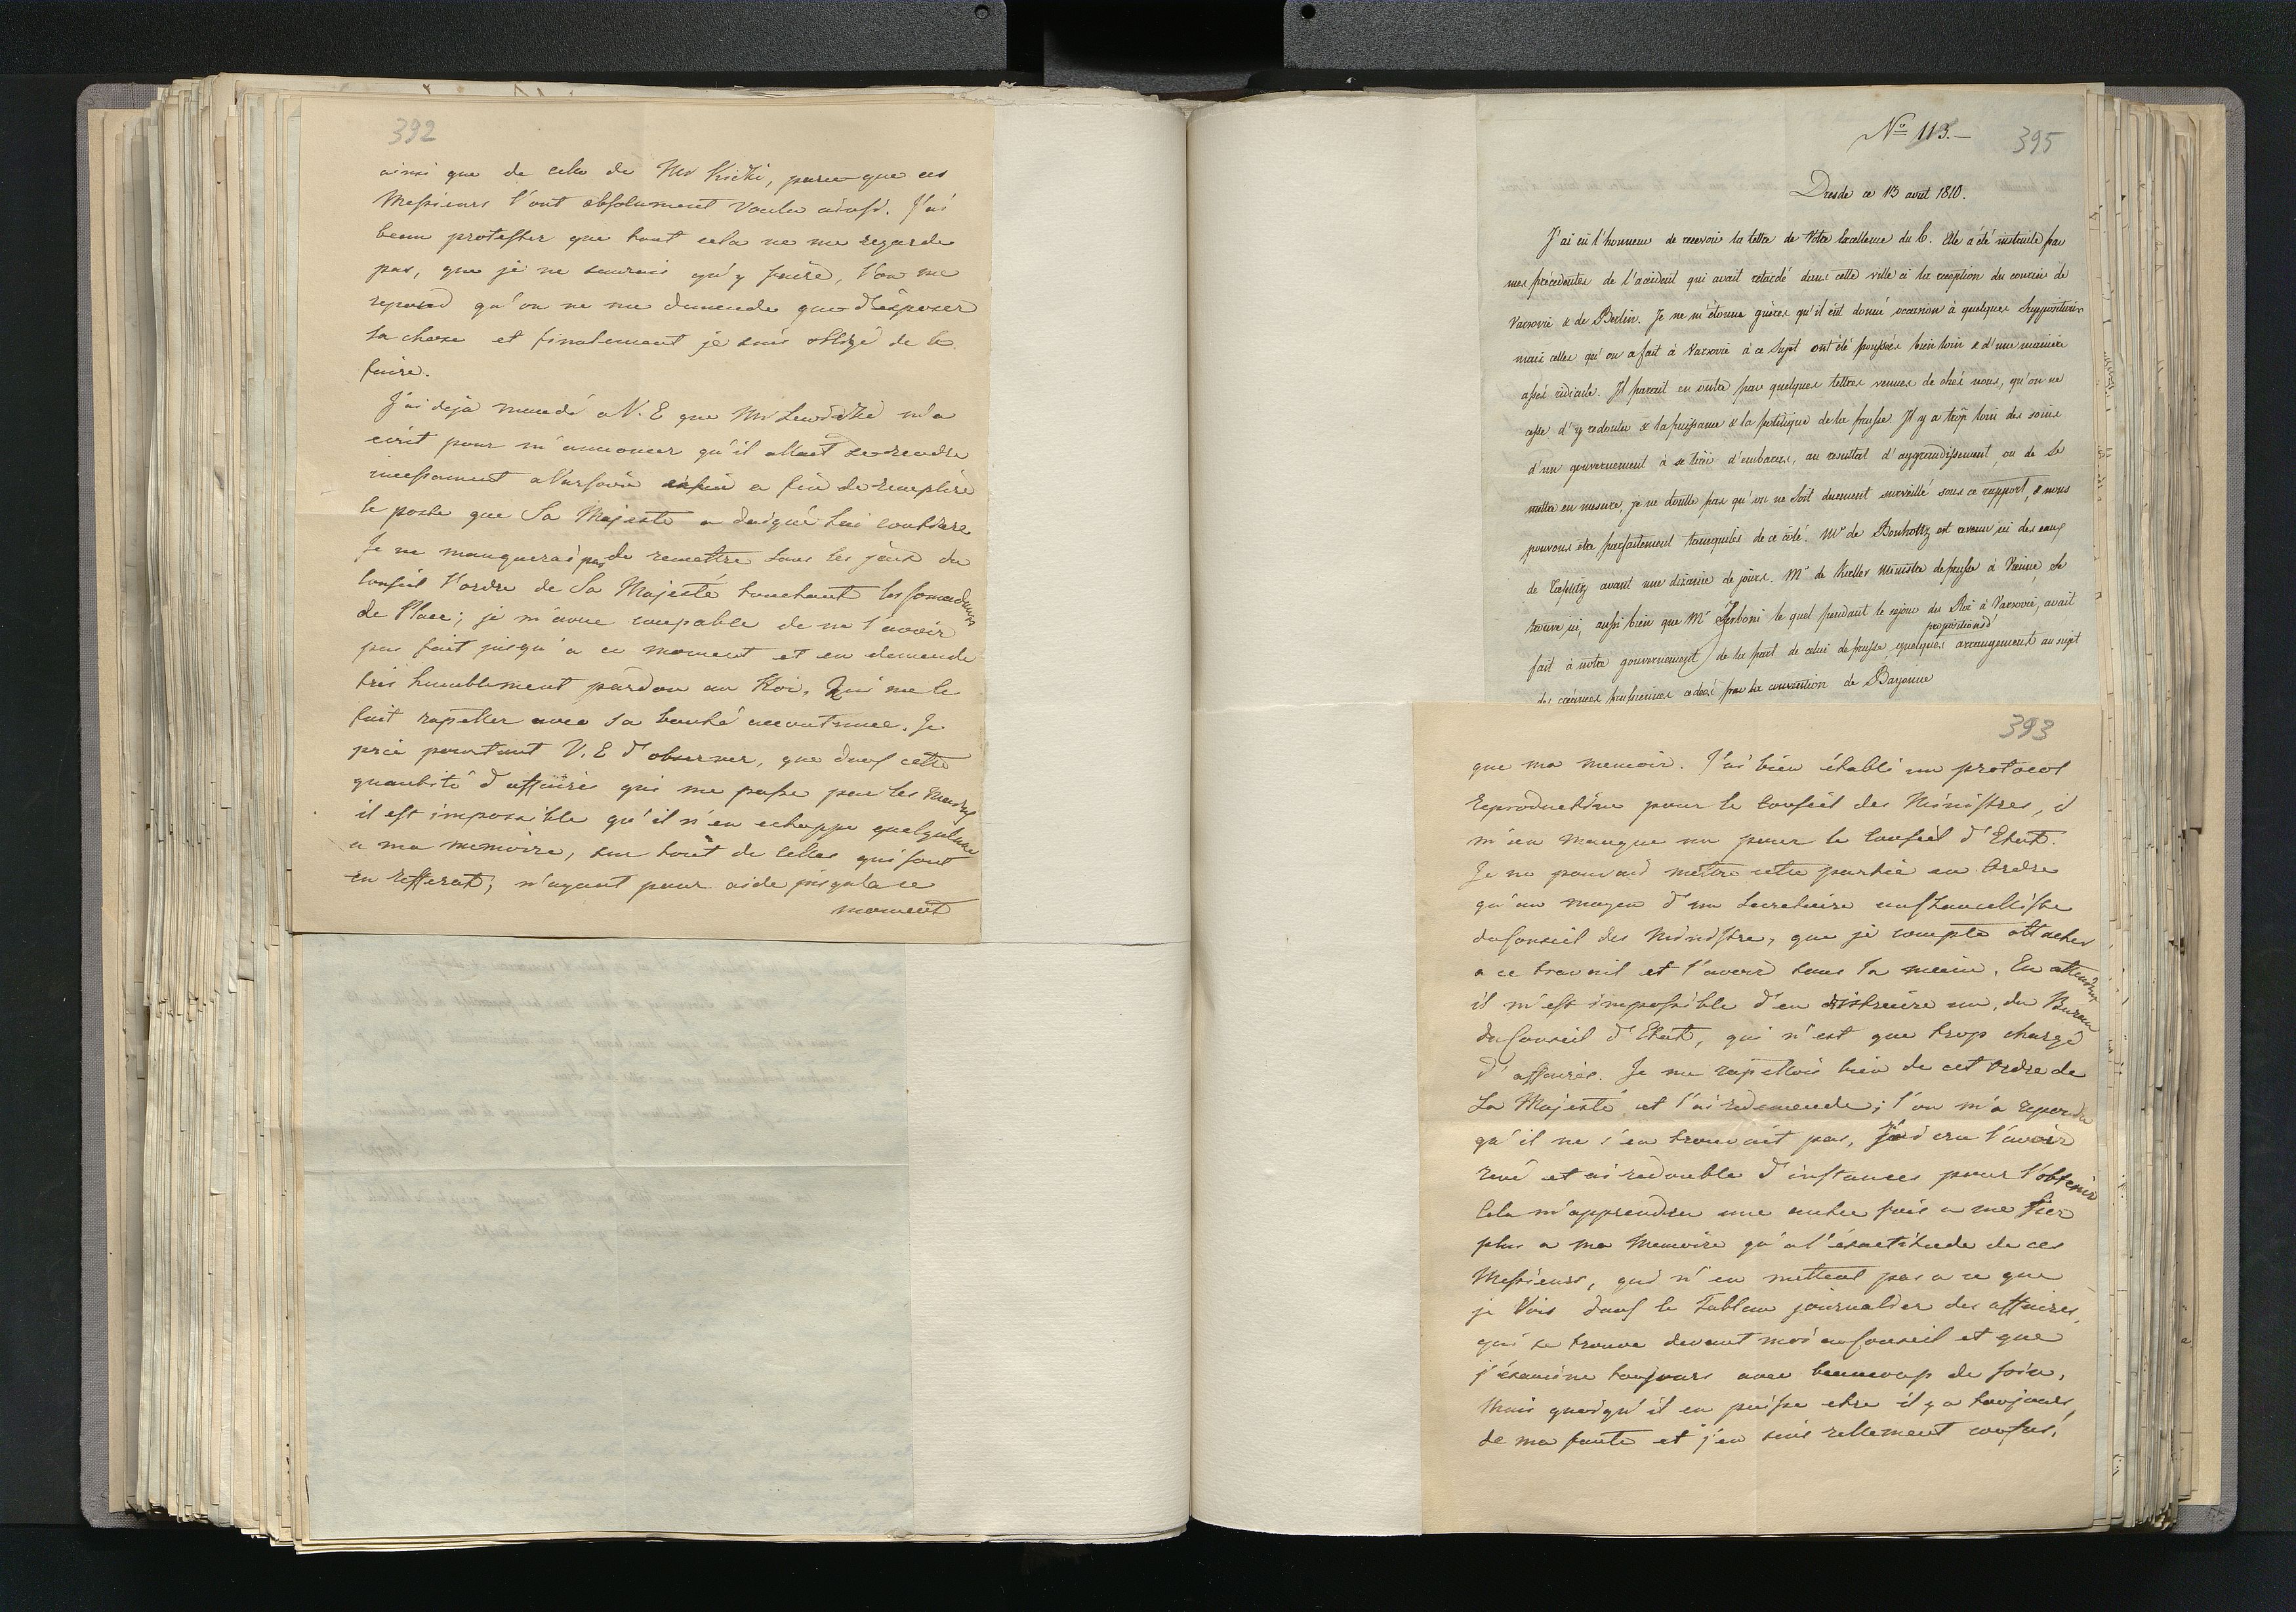 392
ainsi que de celle de Mr Kicki, parce que ces
Messieurs l'ont absolument voulu ainsi. J'ai
beau protester que tout cela ne me regarde
pas, que je ne saurais qu'y faire, l'on me
repond qu'on ne me demende que d'exposer
la chose et finalement je suis obligé de le
faire.
J'ai deja mandé a V. E que Mr m'a
ecrit pour m'annoncer qu'il allait se rendre
incessament a Varsovie a fin de remplire
le poste que Sa Majesté a daigné lui
Je ne manquerai pas de remettre sous les yeux du
Conseil l'ordre de Sa Majesté touchant les
de Place; je m'avoue coupable de ne l'avoir
pas fait jusqu'a ce moment et en demende
très humblement pardon au Roi, Qui me le
fait rapeller avec sa bonté accoutumee. Je
prie pourtant V. E d'observer, que dans cette
quantité d'affaires qui me passe par les mains
il est impossible qu'il n'en echappe quelqu'une
a ma memoire, sur tout de celles qui sont
en refferat, n'ayant pour aide jusqu'a ce
moment
No 113.—
395
Dresde ce 13 août 1810.
J'ai eû l'honneur de recevoir la lettre de Votre Excellence du 6. Elle a été instruite par
mes précédentes de l'accident qui avait retardé dans cette ville ci la reception du courier de
Varsovie & de Berlin. Je ne m'étonne guères qu'il eût donné occasion à quelques suppositions
mais celles qu'on a fait à Varsovie à ce sujet ont été poussées bien loin & d'une manière
assés ridicule. Il parait en outre par quelques lettres venues de chés nous, qu'on ne
cesse d'y redouter & la puissance & la politique de la prusse. Il y a trop loin des soins
d'un gouvernement à se tirer d'embaras, au resultat d'aggrandissement, ou de se
mettre en mesure, je ne doutte pas qu'on ne soit duement surveillé sous ce rapport, & nous
pouvons être parfaitement tranquiles de ce côté. Mr de est revenu ici des eaux
de Toeplitz avant une dixaine de jours. Mr de Ministre de prusse à Vienne, se
trouve ici, aussi bien que Mr Zerboni le quel pendant le sejour du Roi à Varsovie, avait
propositions d'
fait à notre gouvernement de la part de celui de prusse, quelques arrangements au sujet
des créances prussiennes cedées par la convention de Bayonne
393
que ma memoir. J'ai bien établi un protocol
reproductive pour le Conseil des Ministres, il
m'en manque un pour le Conseil d'Etat.
Je ne pourrai mettre cette partie en Ordre
qu'au moyen d'un Secretaire
du Conseil des Ministre, que je compte attacher
a ce travail et l'avoir sous la main. En attendant
il m'est impossible d'en distraire un, du Bureau
du Conseil d'Etat, qui n'est que trop chargé
d'affaires. Je me rapellois bien de cet Ordre de
Sa Majesté et l'ai redemendé; l'on m'a repondu
qu'il ne s'en trouvait pas, J'ai cru l'avoir
revé et ai redouble d'instances pour l'obtenir
Cela m'apprendra une autre fois a me fier
plus a ma Memoire qu'a l'exactitude de ces
Messieurs, qui n'en mettent pas a ce que
je vois dans le Tableau journalier des affaires,
qui se trouve devant moi au Conseil et que
j'examine toujours avec beaucoup de soin,
Mais quoiqu'il en puisse etre il y a toujours
de ma faute et j'en suis réllement confus,